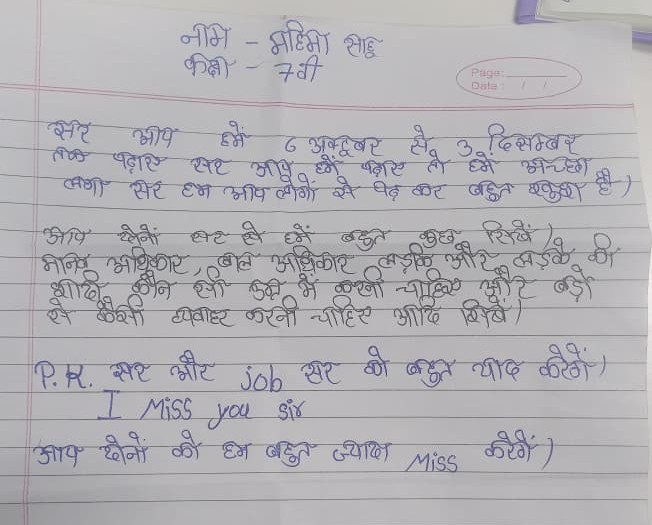 नाम - महिमा साहू
कक्षा - 7वी
Page:
Date: / /
सर आप हमें 6 अक्टूबर से 3 दिसम्बर
तक पढ़ाए सर आप हमें पढ़ाए तो हमें अच्छा
लगा सर हम आप लोगों से पढ़ कर बहुत खुश है।
आप दोनों सर से हमें बहुत कुछ सिखें।
मानव अधिकार, बाल अधिकार लड़कि और लड़के की
शादि कौन सी उम्र में करनी चाहिए और बड़ो
से कैसी व्यवाहर करनी चाहिए आदि सिखें।
P.R. सर और job सर को बहुत याद करेगें।
I Miss you sir
आप दोनों को हम बहुत ज्यादा Miss करेगें।